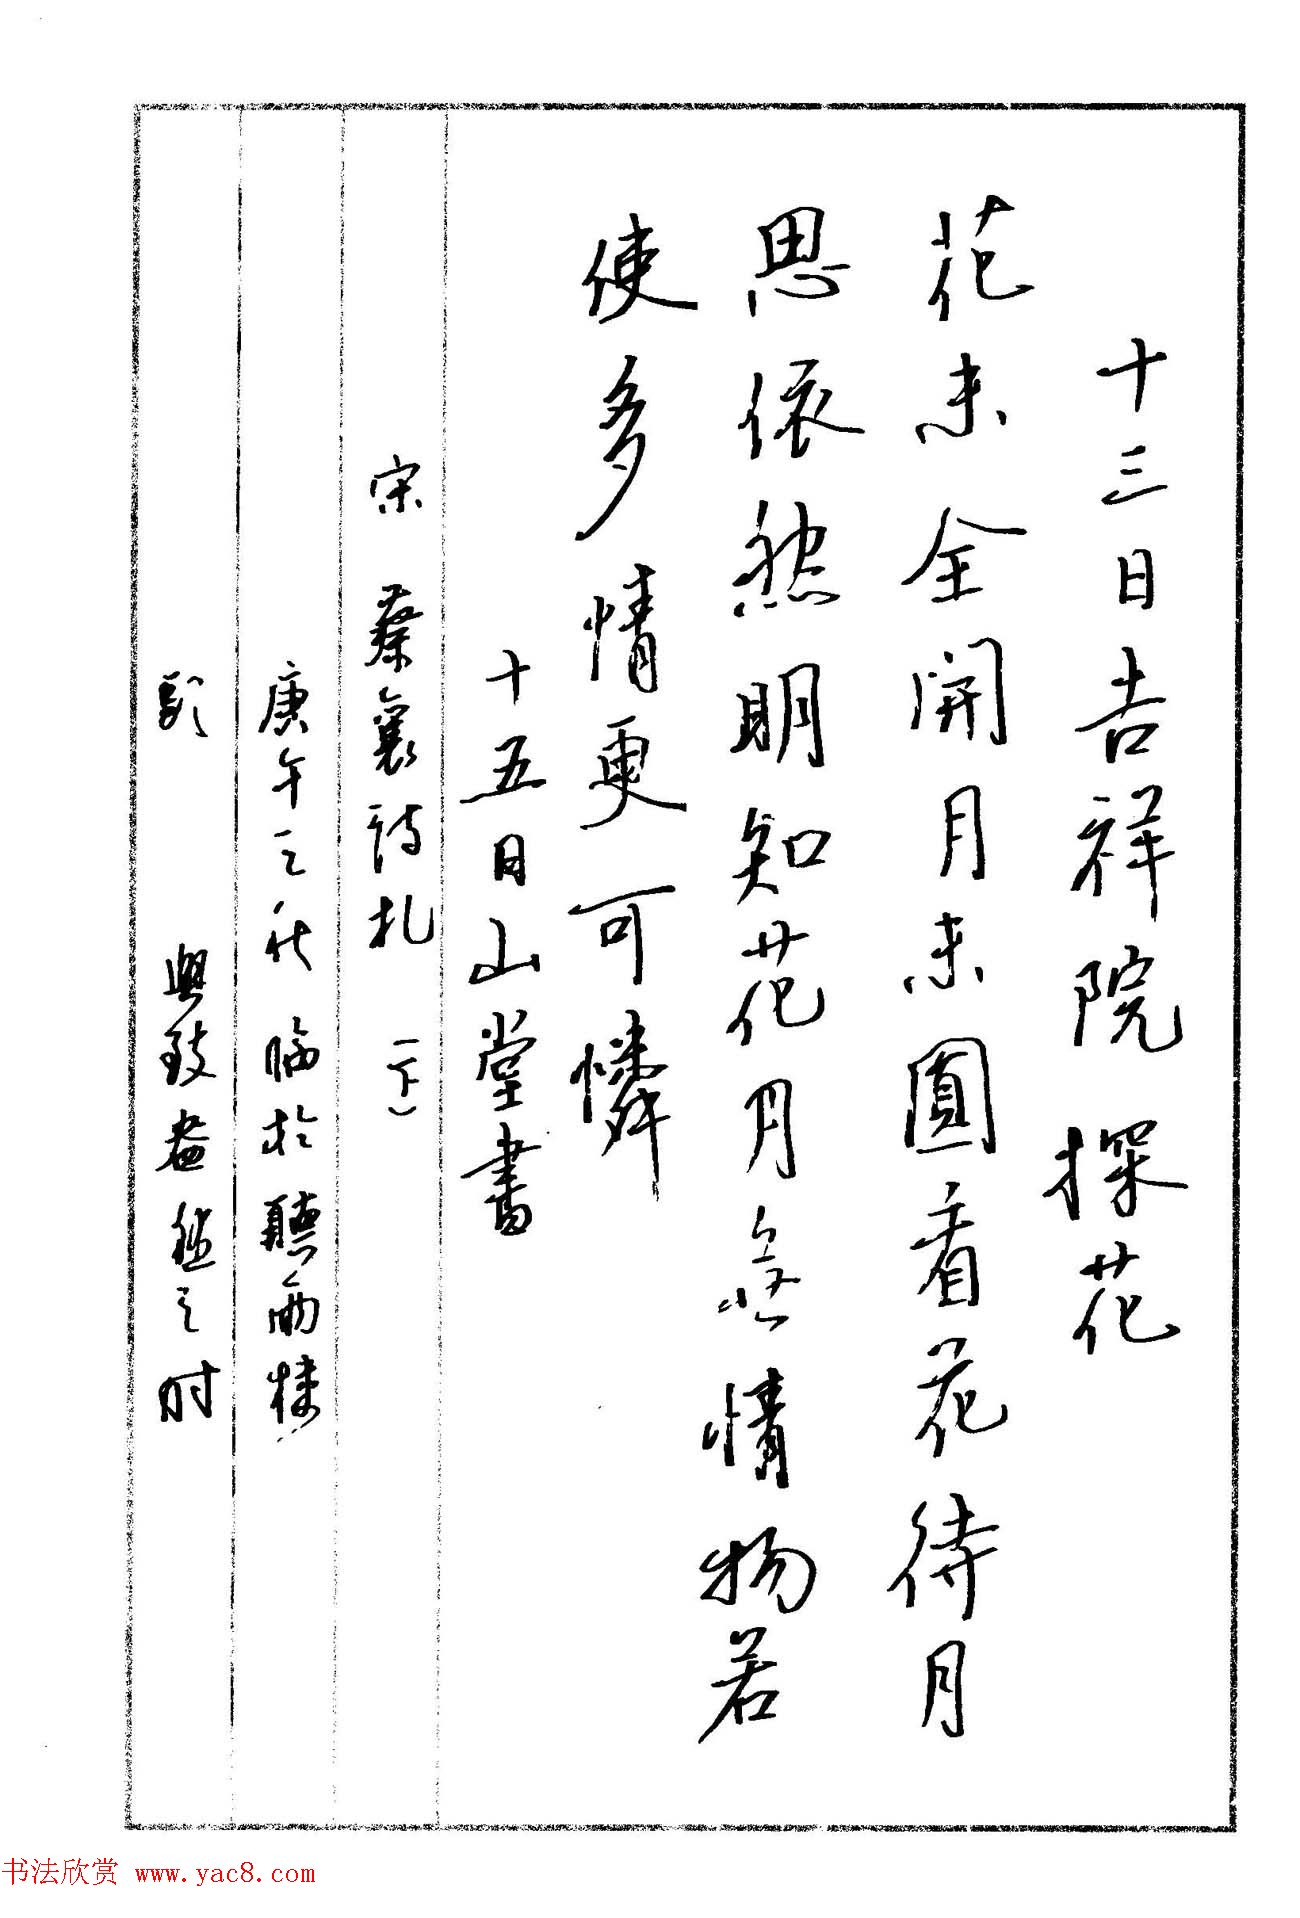 十三日吉祥院探花
花未全開月未圓看花待月
思依然明知花月無情物若
使多情更可憐
十五日山堂書
宋 蔡襄詩札(下)
庚午之秋 臨於聽雨樓
興致盎然之时
书法欣赏 www.yac8.com